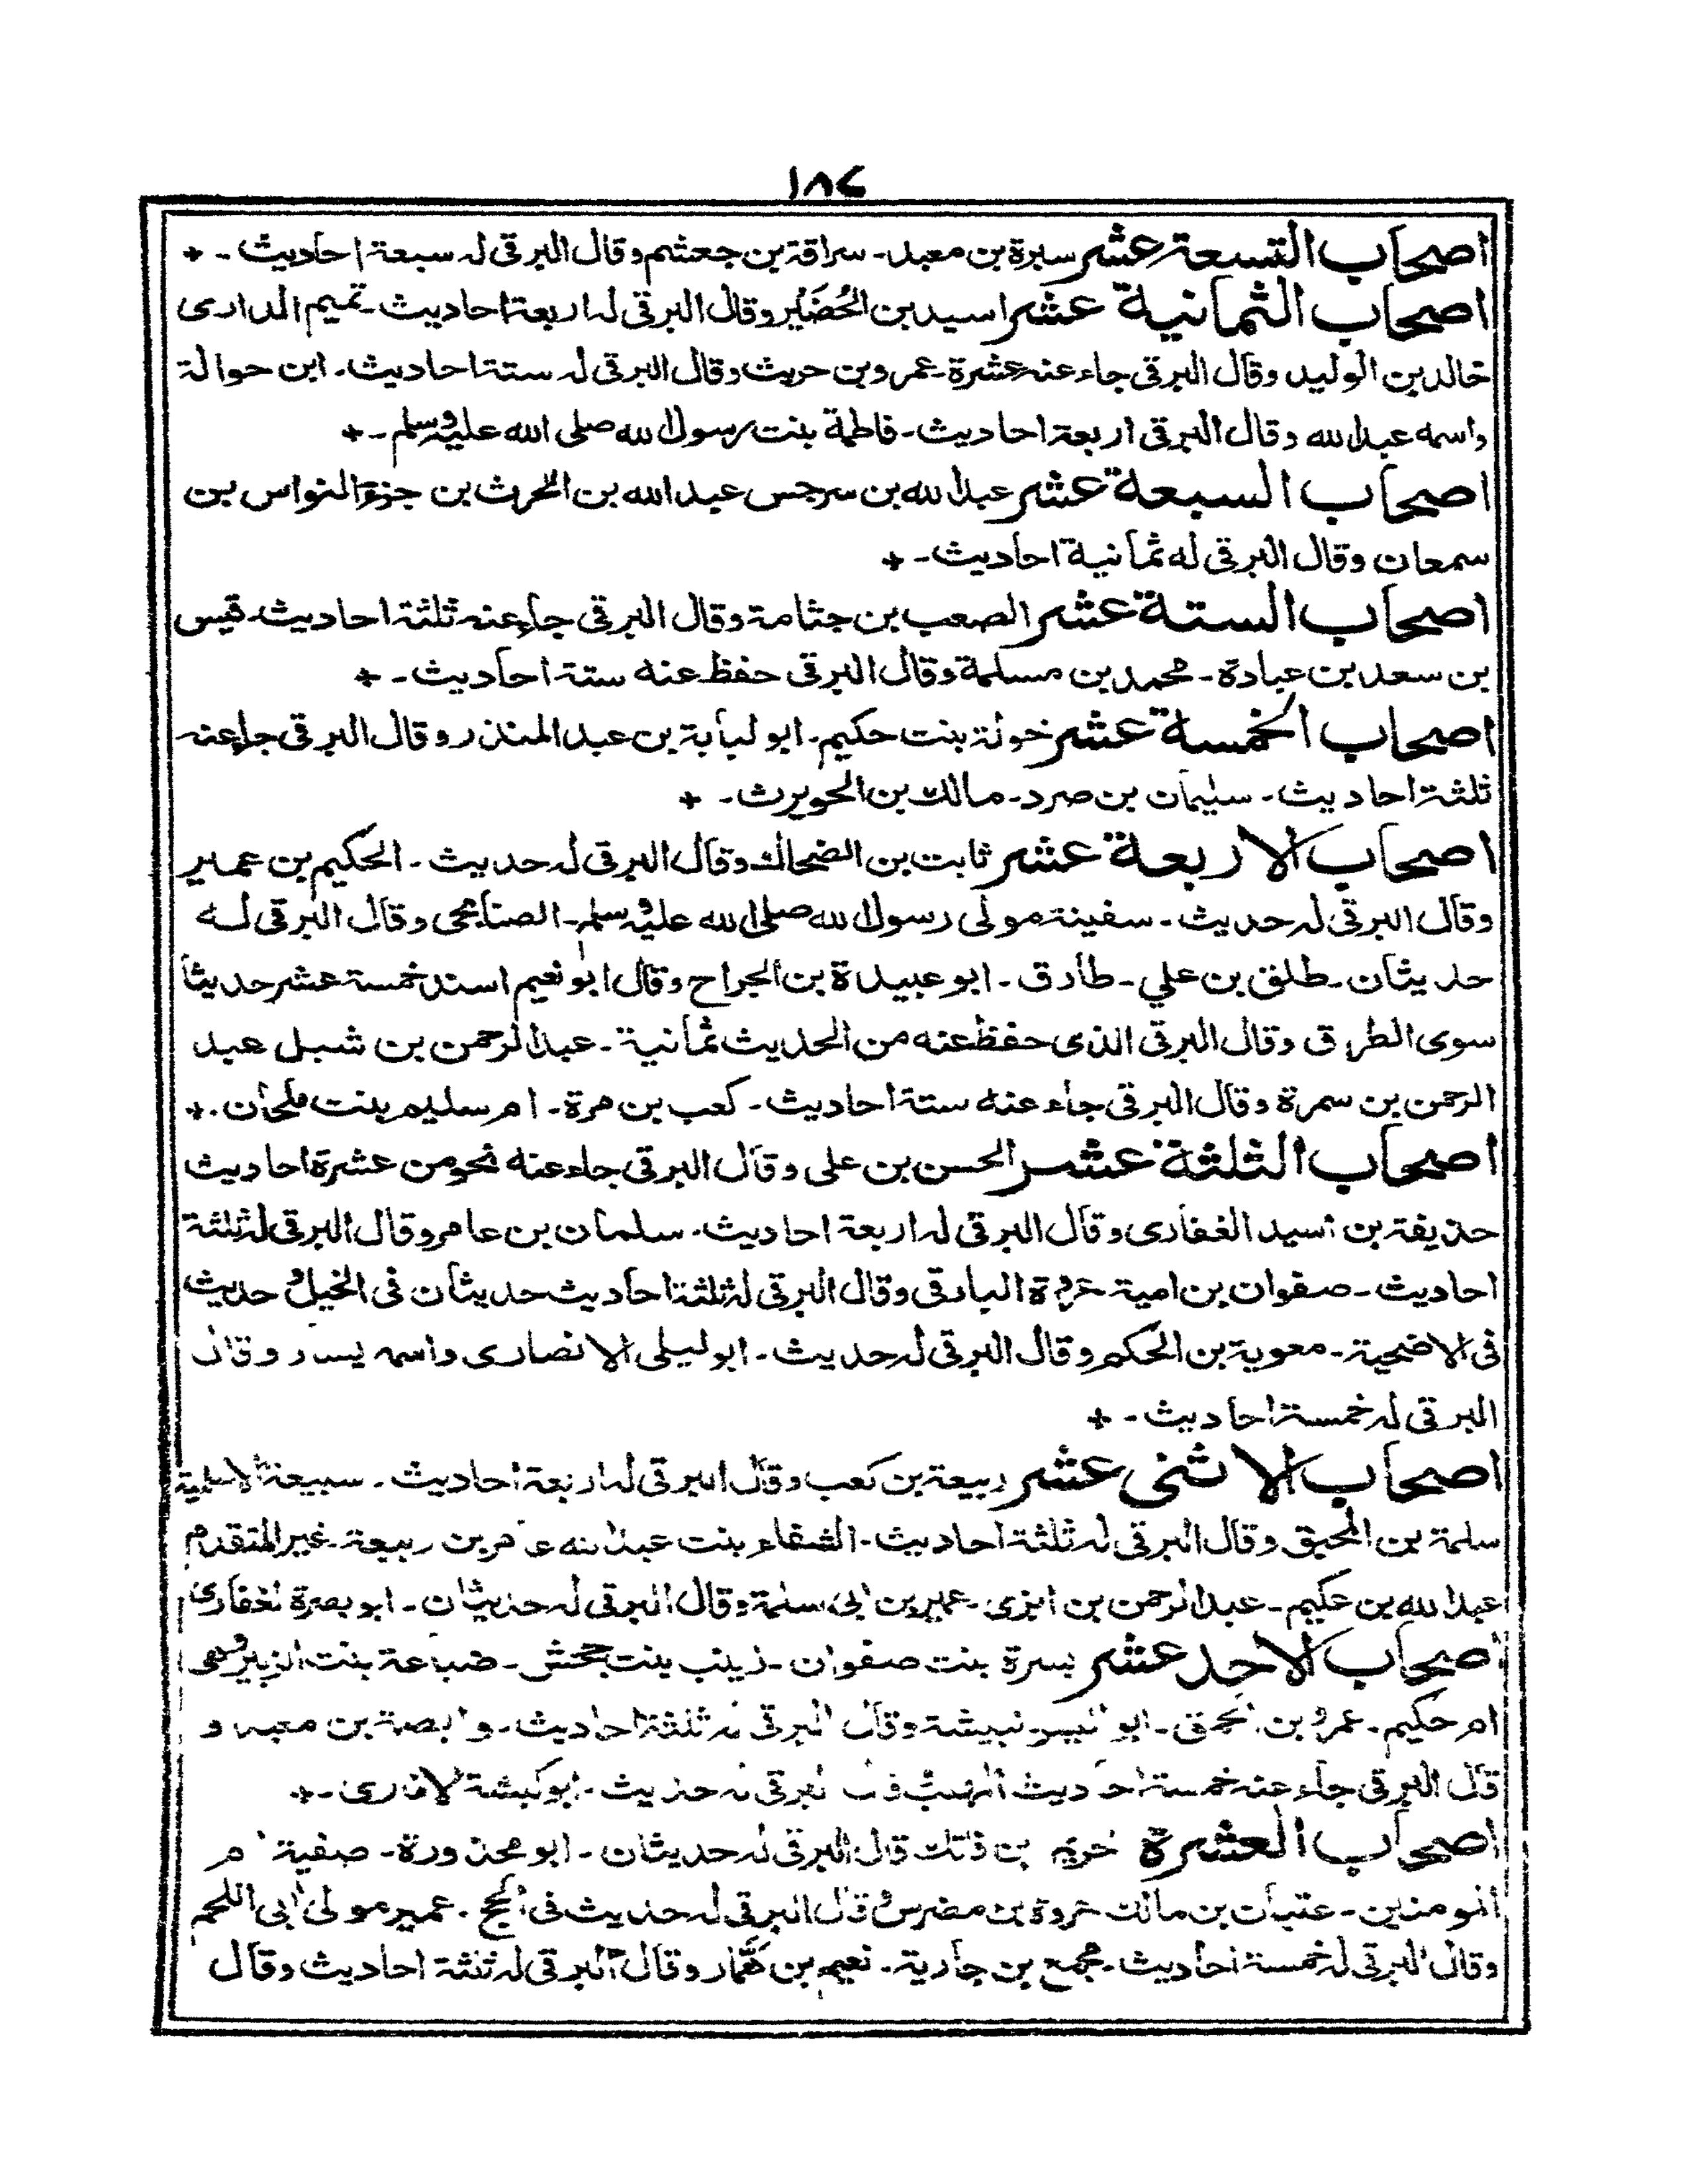 ١٨٤
اصحاب التسعة عشر سبرة بن معبد - سراقة بن جعشم وقال البرقى له سبعة احاديث - +
اصحاب الثمانية عشر اسيد بن الحُضَيْر وقال البرقى له اربعة احاديث - تميم الدارى
خالد بن الوليد وقال البرقى جاء عنه عشرة - عمرو بن حريث وقال البرقى له ستة احاديث - ابن حوالة
واسمه عبد الله وقال البرقى اربعة احاديث - فاطمة بنت رسول الله صلى الله عليه وسلم - +
اصحاب السبعة عشر عبد الله بن سرجس عبد الله بن الحرث بن جزء النواس بن
سمعان وقال البرقى له ثمانية احاديث - +
اصحاب الستة عشر الصعب بن جثامة وقال البرقى جاء عنه ثلثة احاديث - قيس
بن سعد بن عبادة - محمد بن مسلمة وقال البرقى حفظ عنه ستة احاديث - +
اصحاب الخمسة عشر خولة بنت حكيم - ابو لبابة بن عبد المنذر وقال البرقى جاء عنه
ثلثة احاديث - سليمان بن صرد - مالك بن الحويرث - +
اصحاب الاربعة عشر ثابت بن الضحاك وقال البرقى له حديث - الحكيم بن عمير
وقال البرقى له حديث - سفينة مولى رسول الله صلى الله عليه وسلم - الصنابحى وقال البرقى له
حديثان - طلق بن علي - طارق - ابو عبيدة بن الجراح وقال ابو نعيم اسند خمسة عشر حديثا
سوى الطرق وقال البرقى الذى حفظ عنه من الحديث ثمانية - عبد الرحمن بن شبل عبد
الرحمن بن سمرة وقال البرقى جاء عنه ستة احاديث - كعب بن مرة - ام سليم بنت ملحان - +
اصحاب الثلثة عشر الحسن بن على وقال البرقى جاء عنه نحو من عشرة احاديث
حذيفة بن اسيد الغفارى وقال البرقى له اربعة احاديث - سلمان بن عامر وقال البرقى له ثلثة
احاديث - صفوان بن امية عروة البارقى وقال البرقى له ثلثة احاديث حديثان فى الخيل و حديث
فى الاضحية - معوية بن الحكم وقال البرقى له حديث - ابو ليلى الانصارى واسمه يسار وقال
البرقى له خمسة احاديث - +
اصحاب الاثنى عشر ربيعة بن كعب وقال البرقى له اربعة احاديث - سبيعة الاسلمية
سلمة بن المحبق وقال البرقى له ثلثة احاديث - الشفاء بنت عبد الله عامر بن ربيعة - غير المتقدم
عبد الله بن عكيم - عبد الرحمن بن ابزى - عمير بن ابى سلمة وقال البرقى له حديثان - ابو بصرة الغفارى
اصحاب الاحد عشر بسرة بنت صفوان - زينب بنت جحش - ضباعة بنت الزبير وهى
ام حكيم - عمرو بن الحمق - ابو اليسر - نبيشة وقال البرقى له ثلثة احاديث - وابصة بن معبد و
قال البرقى جاء عنه خمسة احاديث قال البرقى له حديث - ابو كبشة الانمارى - +
اصحاب العشرة خريم بن فاتك قال البرقى له حديثان - ابو محذورة - صفية ام
المومنين - عتبان بن مالك عروة بن مضرس قال البرقى له حديث فى الحج - عمير مولى ابى اللحم
وقال البرقى له خمسة احاديث - مجمع بن جارية - نعيم بن همار وقال البرقى له ثلثة احاديث وقال